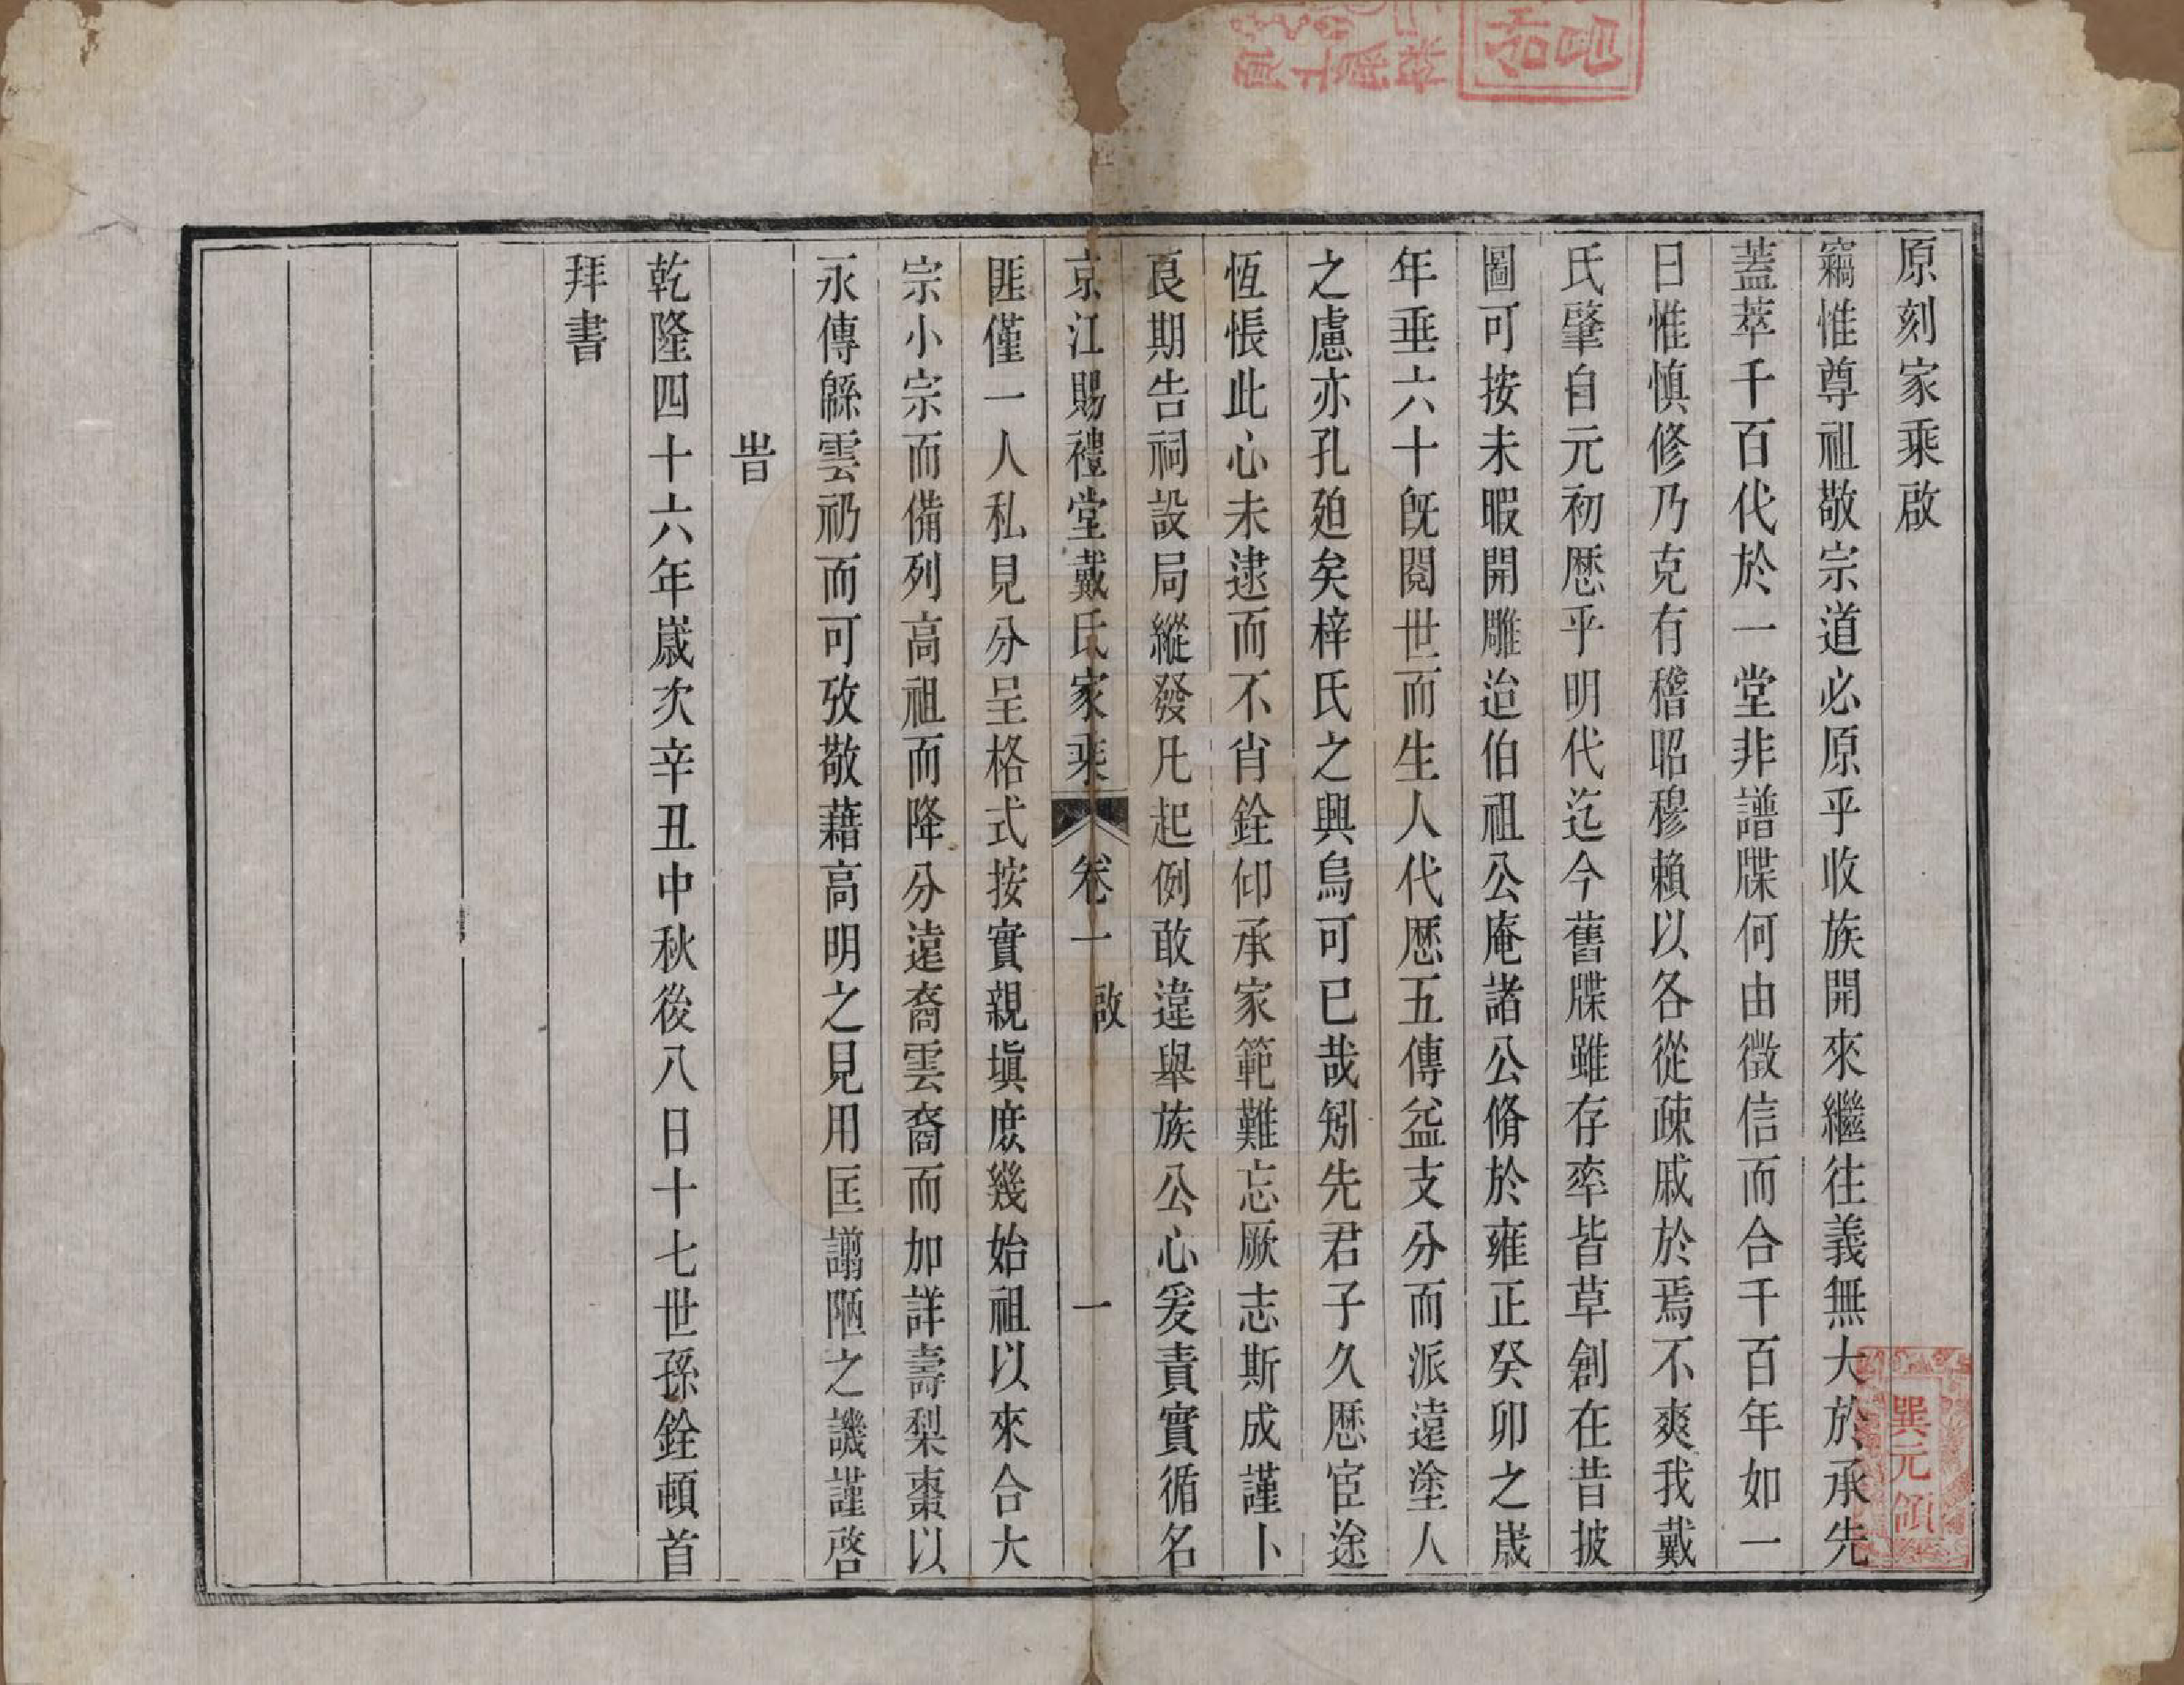 原刻家乘啟
竊惟尊祖敬宗道必原乎收族開來繼往義無大於承先
蓋萃千百代於一堂非譜牒何由徵信而合千百年如一
日惟慎修乃克有稽昭穆賴以各從疎戚於焉不爽我戴
氏肇自元初歷乎明代迄今舊牒雖存率皆草創在昔披
圖可按未暇開雕迨伯祖公庵諸公脩於雍正癸卯之歲
年垂六十旣閱世而生人代歷五傳益支分而派遠塗人
之慮亦孔廹矣梓氏之興烏可已哉矧先君子久歷宦途
恆悵此心未逮而不肖銓仰承家範難忘厥志斯成謹卜
良期告祠設局縱發凡起例敢違舉族公心爰責實循名
京江賜禮堂戴氏家乘 卷一 啟 一
匪僅一人私見分呈格式按實親塡庶幾始祖以來合大
宗小宗而備列高祖而降分遠裔雲裔而加詳壽梨棗以
永傳緜雲礽而可攷敬藉高明之見用匡謭陋之譏謹啓
旹
乾隆四十六年歲次辛丑中秋後八日十七世孫銓頓首
拜書
巽元領